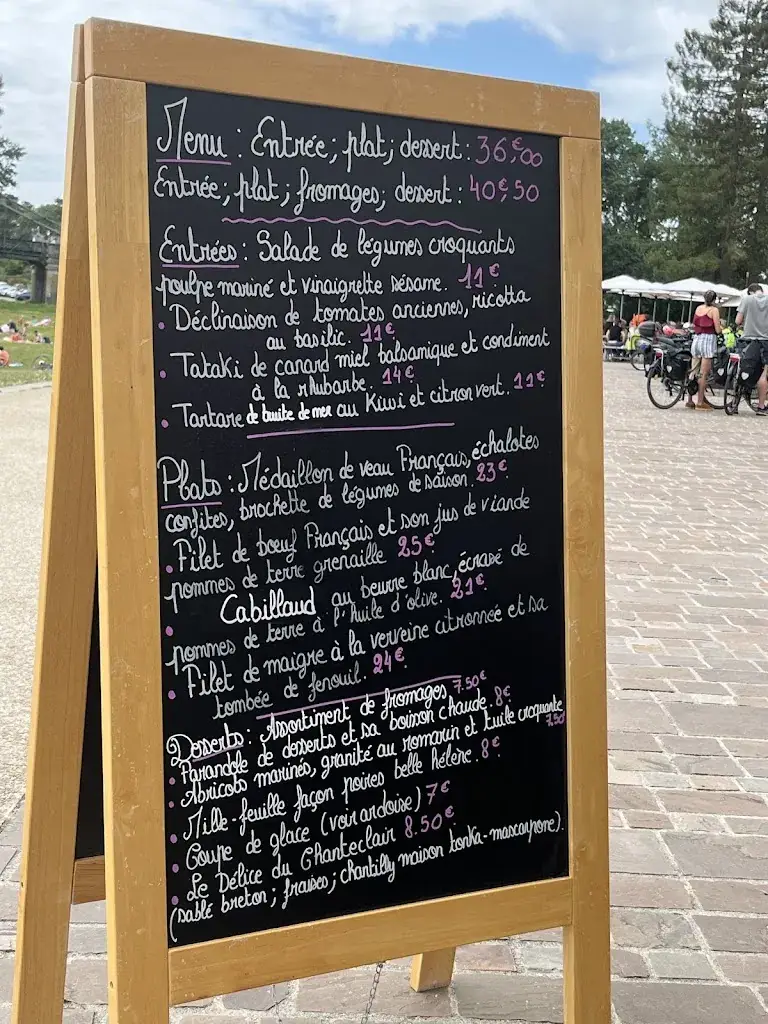 Menu : Entrée; plat; dessert : 36€00
Entrée; plat; fromages; dessert : 40€50
Entrées : Salade de légumes croquants
poulpe mariné et vinaigrette sésame. 11€
• Déclinaison de tomates anciennes, ricotta
au basilic. 11€
• Tataki de canard miel balsamique et condiment
à la rhubarbe. 14€
• Tartare de truite de mer au Kiwi et citron vert. 11€
Plats : Médaillon de veau Français, échalotes
confites, brochette de légumes de saison. 23€
• Filet de bœuf Français et son jus de viande
pommes de terre grenaille 25€
• Cabillaud au beurre blanc, écrasé de
pommes de terre à l'huile d'olive. 21€
• Filet de maigre à la verveine citronnée et sa
tombée de fenouil. 24€
Desserts : Assortiment de fromages. 7.50€
• Farandole de desserts et sa boisson chaude. 8€
• Abricots marinés, granité au romarin et tuile croquante 7.50
• Mille-feuille façon poires belle hélène. 8€
• Coupe de glace (voir ardoise) 7€
• Le Délice du Chanteclair 8.50€
(sablé breton; fraises; chantilly maison tonka-mascarpone).